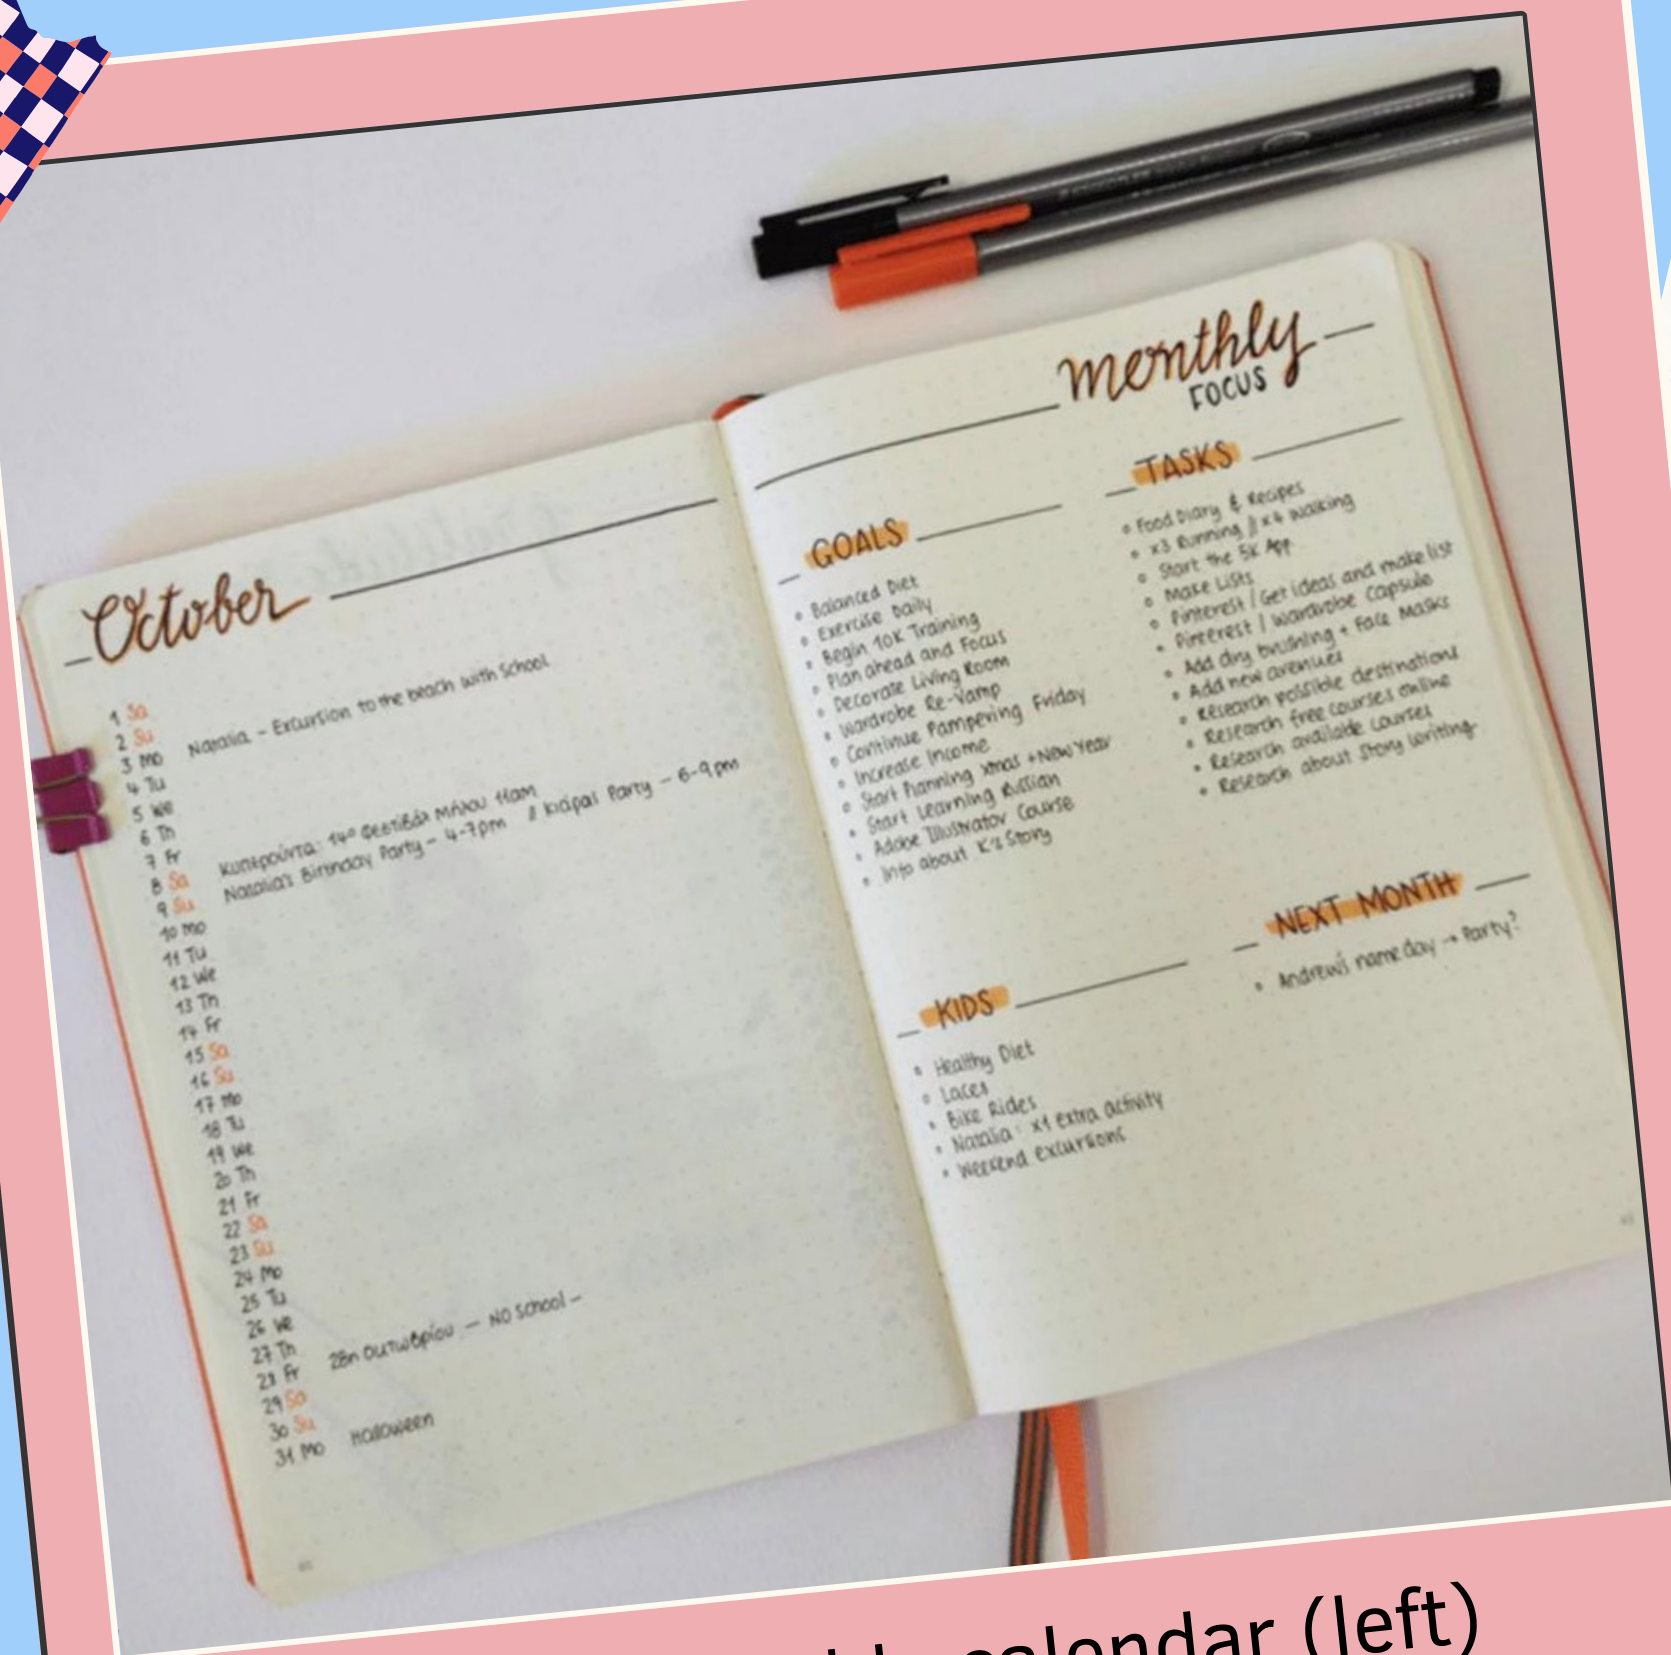 October
1 Sa
2 Su
3 Mo Natalia - Excursion to the beach with School
4 Tu
5 We
6 Th
7 Fr
8 Sa Κυπερούντα: 14º Φεστιβάλ Μήλου 11am
9 Su Natalia's Birthday Party - 4-7pm // Kidpal Party - 6-9pm
10 Mo
11 Tu
12 We
13 Th
14 Fr
15 Sa
16 Su
17 Mo
18 Tu
19 We
20 Th
21 Fr
22 Sa
23 Su
24 Mo
25 Tu
26 We
27 Th
28 Fr 28η Οκτωβρίου - NO School -
29 Sa
30 Su
31 Mo Halloween
monthly
FOCUS
GOALS
Balanced Diet
Exercise Daily
Begin 10K Training
Plan ahead and Focus
Decorate Living Room
Wardrobe Re-Vamp
Continue Pampering Friday
Increase Income
Start Planning xmas + New Year
Start Learning Russian
Adobe Illustrator Course
Info about K's Story
TASKS
Food Diary & Recipes
x3 Running // x4 Walking
Start the 5K App
Make Lists
Pinterest / Get ideas and make list
Pinterest / Wardrobe Capsule
Add dry brushing + Face Masks
Add new avenues
Research possible destinations
Research free courses online
Research available courses
Research about Story Writing
KIDS
Healthy Diet
Laces
Bike Rides
Natalia: x1 extra activity
Weekend excursions
NEXT MONTH
Andrew's nameday → Party?
calendar (left)